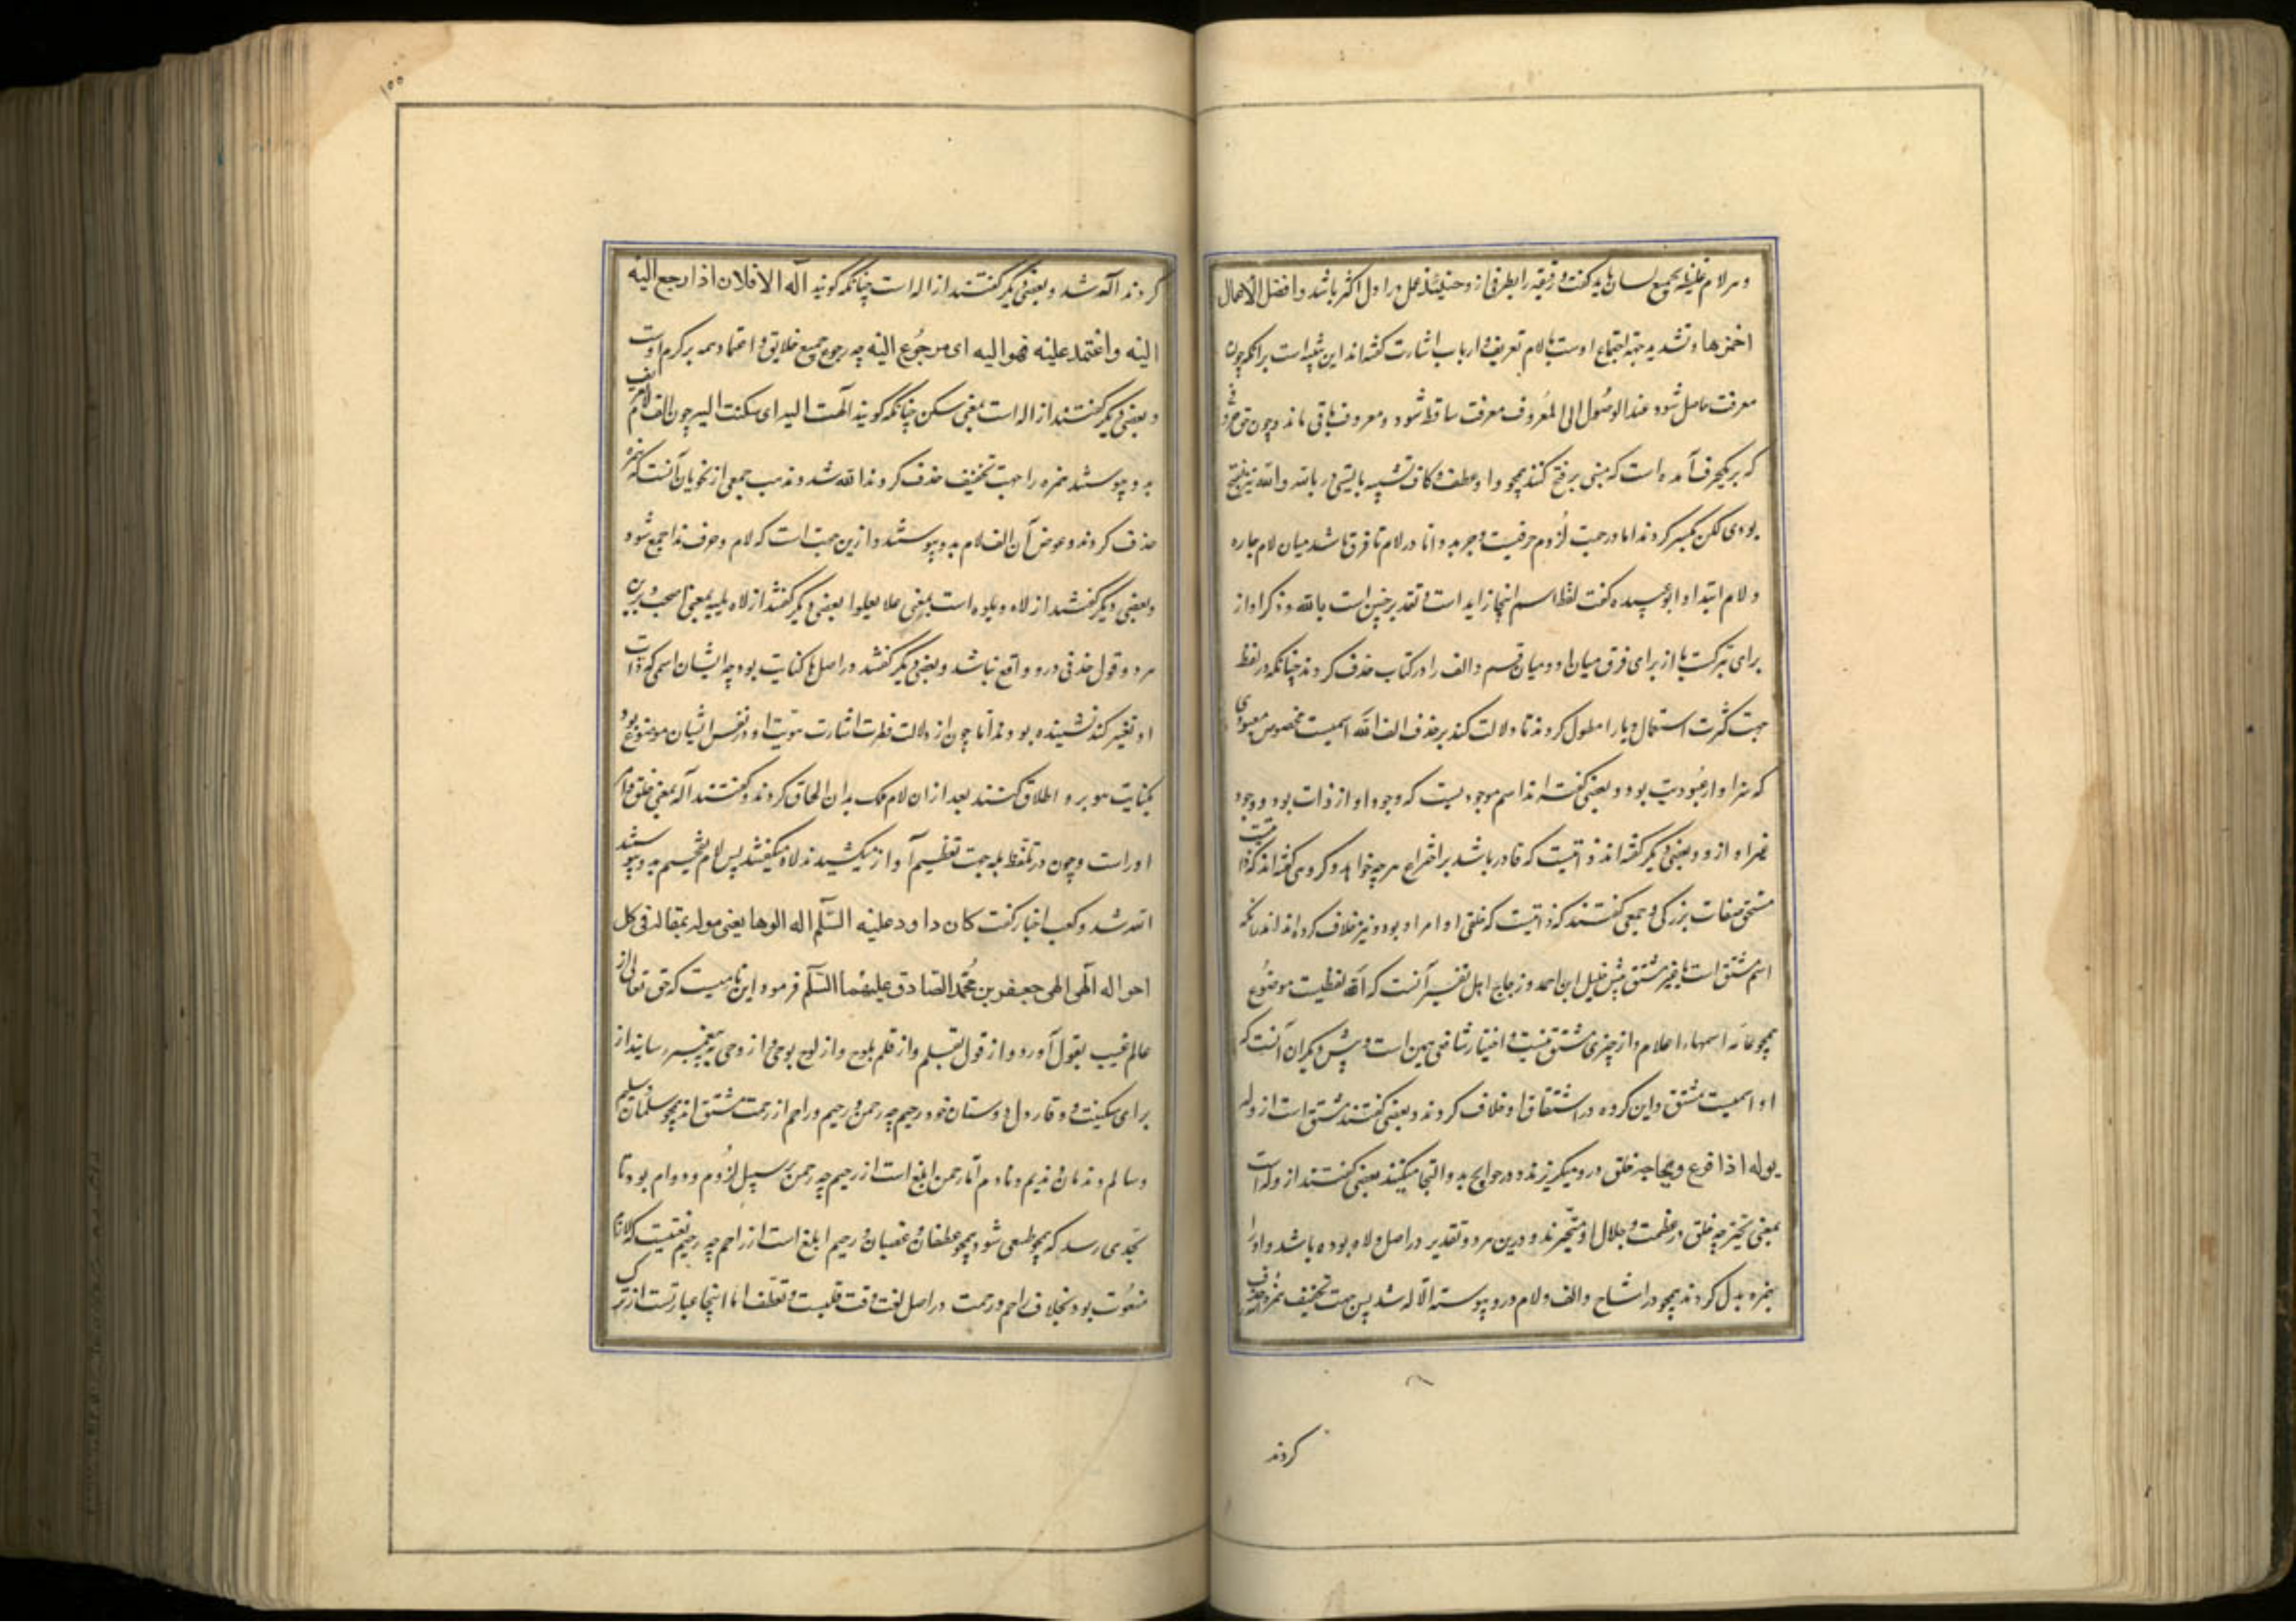 و هر لام غلیظه بجمیع لسان باید گفت و رقیقه را بطرفی ازو حینئذ عمل در اول اکثر باشد و افضل الاعمال
احمزها و تشدید جهة اجتماع اوست با لام تعریف و ارباب اشارت گفته‌اند این تنبیه است برانکه چون
معرفت حاصل شود عند الوصول الی المعروف معرفت ساقط شود و معروف باقی ماند و چون حق حروف
که بر یکحرف آمده است که مبنی بر فتح کنند همچو واو عطف و کاف تشبیه بایستی در بالله و الله نیز بفتح
بودی لکن بکسر کردند اما در جهت لزوم حرفیت و جر بدو اما در لام تا فرق باشد میان لام جاره
و لام ابتدا و ابوعبیده گفت لفظ اسم اینجا زاید است و تقدیر چنین است بالله و ذکر او از
برای تبرکست یا از برای فرق میان او و میان قسم و الف را در کتاب حذف کردند چنانکه در لفظ
جهت کثرت استعمال و با را مطول کردند تا دلالت کند بر حذف الف الله اسمیست مخصوص معبودی
که سزاوار عبودیت بود و بعضی گفته‌اند اسم موجودیست که وجود او از ذات بود و وجود
غیر او ازو و بعضی دیگر گفته‌اند ذاتیست که قادر باشد بر اختراع هر چه خواهد و گروهی گفته‌اند که ذاتیست
مستحق صفات بزرگی و جمعی گفتند که ذاتیست که خلق او امر او بود و نیز خلاف کرده‌اند اندرانکه
اسم مشتق است یا غیر مشتق پیش خلیل ابن احمد و زجاج اهل تفسیر آنست که الله لفظیست موضوع
همچو اسمهاء اعلام و از چیزی مشتق نیست و اختیار شافعی همین است و پیش دیگران آنست که
او اسمیست مشتق و این گروه در اشتقاق او خلاف کردند و بعضی گفتند مشتق است از وله
یوله اذا فزع ویلجا چه خلق درو میگریزند و در حوایج بدو التجا میکنند بعضی گفتند از وله است
بمعنی تحیر چه خلق در عظمت و جلال او متحیرند و درین هر دو تقدیر در اصل ولاه بوده باشد واو را
بهمزه بدل کردند همچو در اشاح و الف و لام درو پیوسته الاله شد پس جهت تخفیف همزه حذف
کردند
۱۵۵
کردند الله شد و بعضی دیگر گفتند از اله است چنانکه گویند اله الا فلان اذا رجع الیه
الیه واعتمد علیه فهو الیه ای مرجوع الیه چه رجوع جمیع خلایق و اعتماد همه بر کرم اوست
و بعضی دیگر گفتند از اله است بمعنی سکن چنانکه گویند الهت الیه ای سکنت الیه چون الف لام تعریف
بدو پیوستند همزه را جهت تخفیف حذف کردند الله شد و مذهب جمعی از نحویان آنست که همزه
حذف کردند و عوض آن الف لام بدو پیوستند و ازین جهت است که لام و حرف ندا جمع شود
و بعضی دیگر گفتند از لاه یلوه است بمعنی علا یعلوا بعضی دیگر گفتند از لاه یلیه بمعنی احتجب و برین
هر دو قول حذفی درو واقع نباشد و بعضی دیگر گفتند در اصل ها کنایت بود چه ایشان اسمی که ذات
او تعبیر کند نشنیده بودند اما چون از دلالت فطرت اشارت هویت او در نفس ایشان موضوع بود
بکنایت هو برو اطلاق کنند بعد ازان لام ملک بدان الحاق کردند و گفتند له بمعنی خلق و امر
او راست و چون در تلفظ بله جهت تعظیم آواز میکشیدند لاه میگفتند پس لام تفخیم بدو پیوستند
الله شد و کعب اخبار گفت کان داود علیه السلم اله الوها یعنی موله بمقاله فی کل
احواله الهی الهی جعفر بن محمد الصادق علیهما السلم فرمود این نامیست که حق تعالی از
عالم غیب بقول آورد و از قول بقلم و از قلم بلوح و از لوح بوحی و از وحی به پیغمبر رسانید از
برای سکینت و وقار دل دوستان خود رحیم چه رحمن و رحیم و راحم از رحمت مشتق‌اند همچو سلمان و سلیم
و سالم و ندمان و ندیم و نادم اما رحمن ابلغ است از رحیم چه رحمن بر سبیل لزوم و دوام بود تا
بحدی رسد که همچو طبعی شود همچو عطشان و غضبان و رحیم ابلغ است از راحم چه رحیم نعتیست که لازم
منعوت بود بخلاف راحم و رحمت در اصل لغت رقت قلبست و تعطف اما اینجا عبارتست از ترک